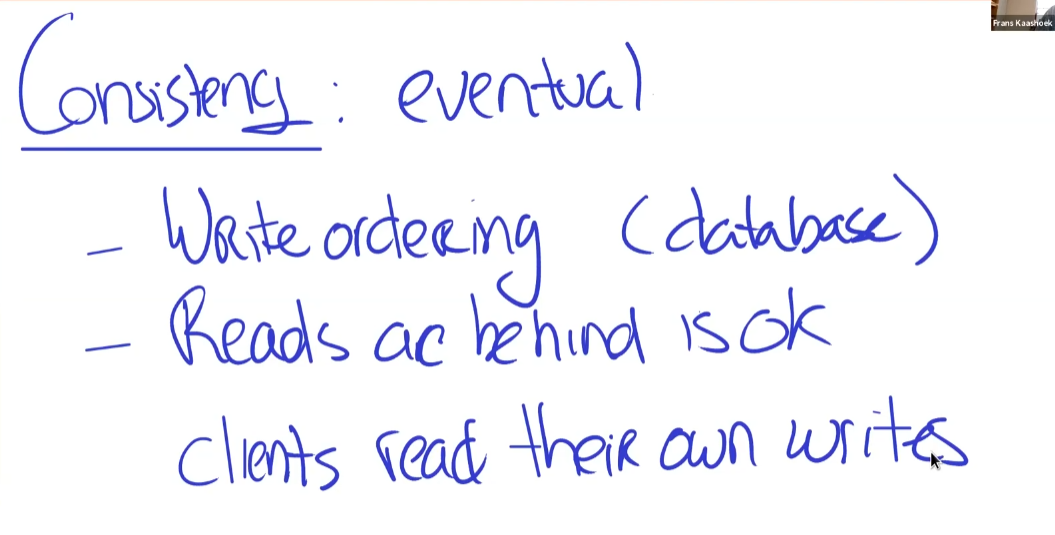 Frans Kaashoek
Consistency : eventual
- Write ordering (database)
- Reads ac behind is ok
clients read their own writes